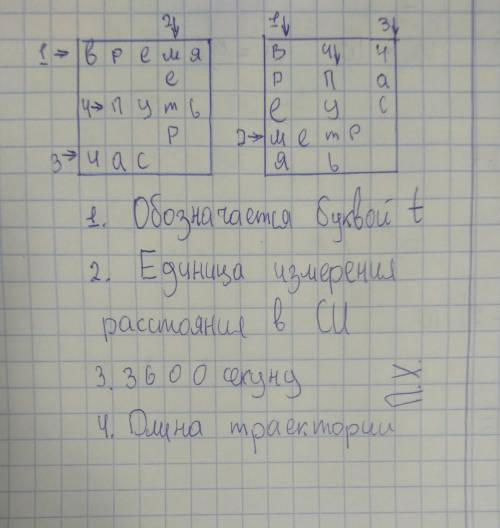 2↓ 1↓ 3↓
1→ время в ч↓ ч
е р п а
4→ путь е у с
р 2→ метр
3→ час я ь
1. Обозначается буквой t
2. Единица измерения
расстояния в СИ
3. 3600 секунд
4. Длина траектории